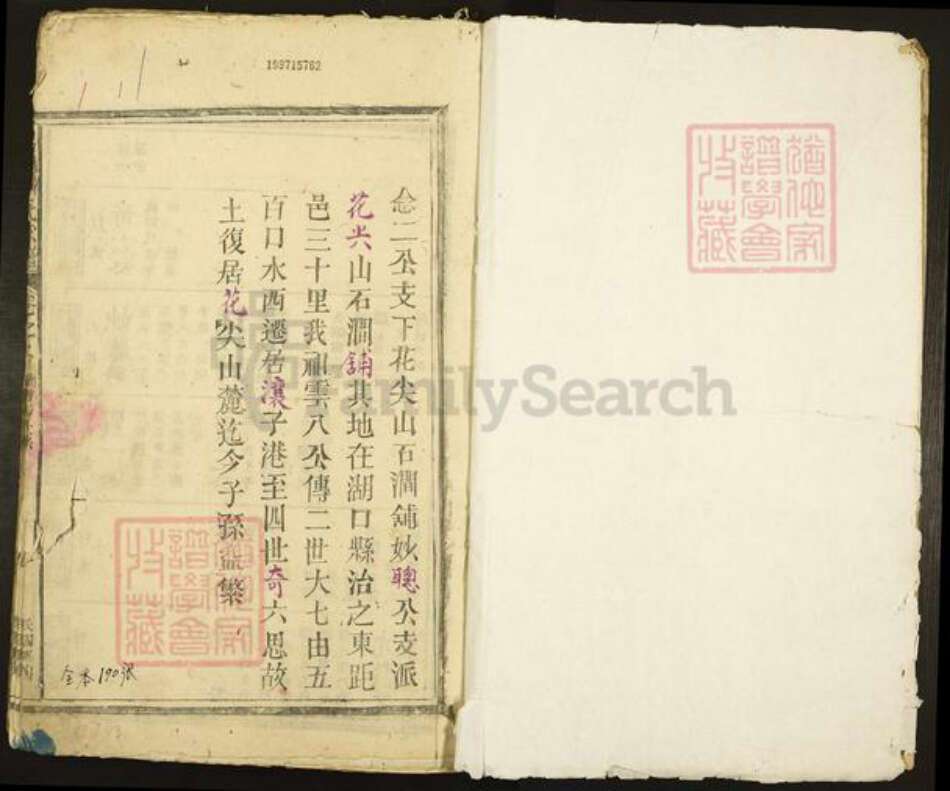 199715762
念二公支下花尖山石澗舖妙聰公支派
花尖山石澗舖其地在湖口縣治之東距
邑三十里我祖雲八公傳二世大七由五
百口水西遷居瀼子港至四世奇六思故
土復居花尖山麓迄今子孫益繁
全本190张
猶他家
譜學會
收藏
猶他家
譜學會
收藏
FamilySearch